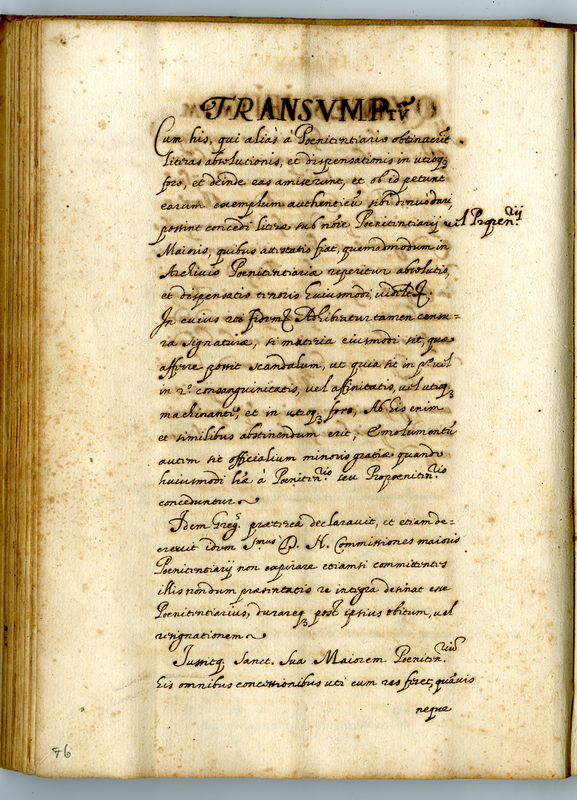 TRANSVMPTŨ
Cum his, qui aliàs à Pœnitentiario obtinuerũt
literas absolutionis, et dispensationis in utroq3
foro, et deinde eas amiserunt, et ob id petunt
earum exemplum authenticũ sibi denuo dari,
possint concedi literæ sub nõie Pœnitentiarij vel Propen.rij
Maioris, quibus attestatio fiat, quemadmodum in
Archivio Pœnitentiariæ reperitur absolutio,
et dispensatio tenoris huiusmodi,
In cuius rei fidem Adhibeatur tamen censu-
ra signaturæ, si materia eiusmodi sit, quæ
afferre possit scandalum, ut quia sit in p.º vel
in 2.º consanguinitatis, vel affinitatis, vel utroq3
machinante, et in utroq3 foro, Ab his enim
et similibus abstinendum erit; Emolumentũ
autem sit officialium minoris gratiæ quando
huiusmodi lræ à Pœniten.rio seu Propœniten.rio
conceduntur
Idem Greg.s præterea declaravit, et etiam de=
crevit idem S.mus D. N. Commissiones maioris
Pœnitentiarij non expirare etiamsi committentes
illis nondum præsentatis re integra desinat esse
Pœnitentiarius, durareq3 post ipsius obitum, vel
resignationem
Iussitq3 Sanct. Sua Maiorem Pœniten.rium
his omnibus concessionibus uti cum res feret, quãvis
neque
96